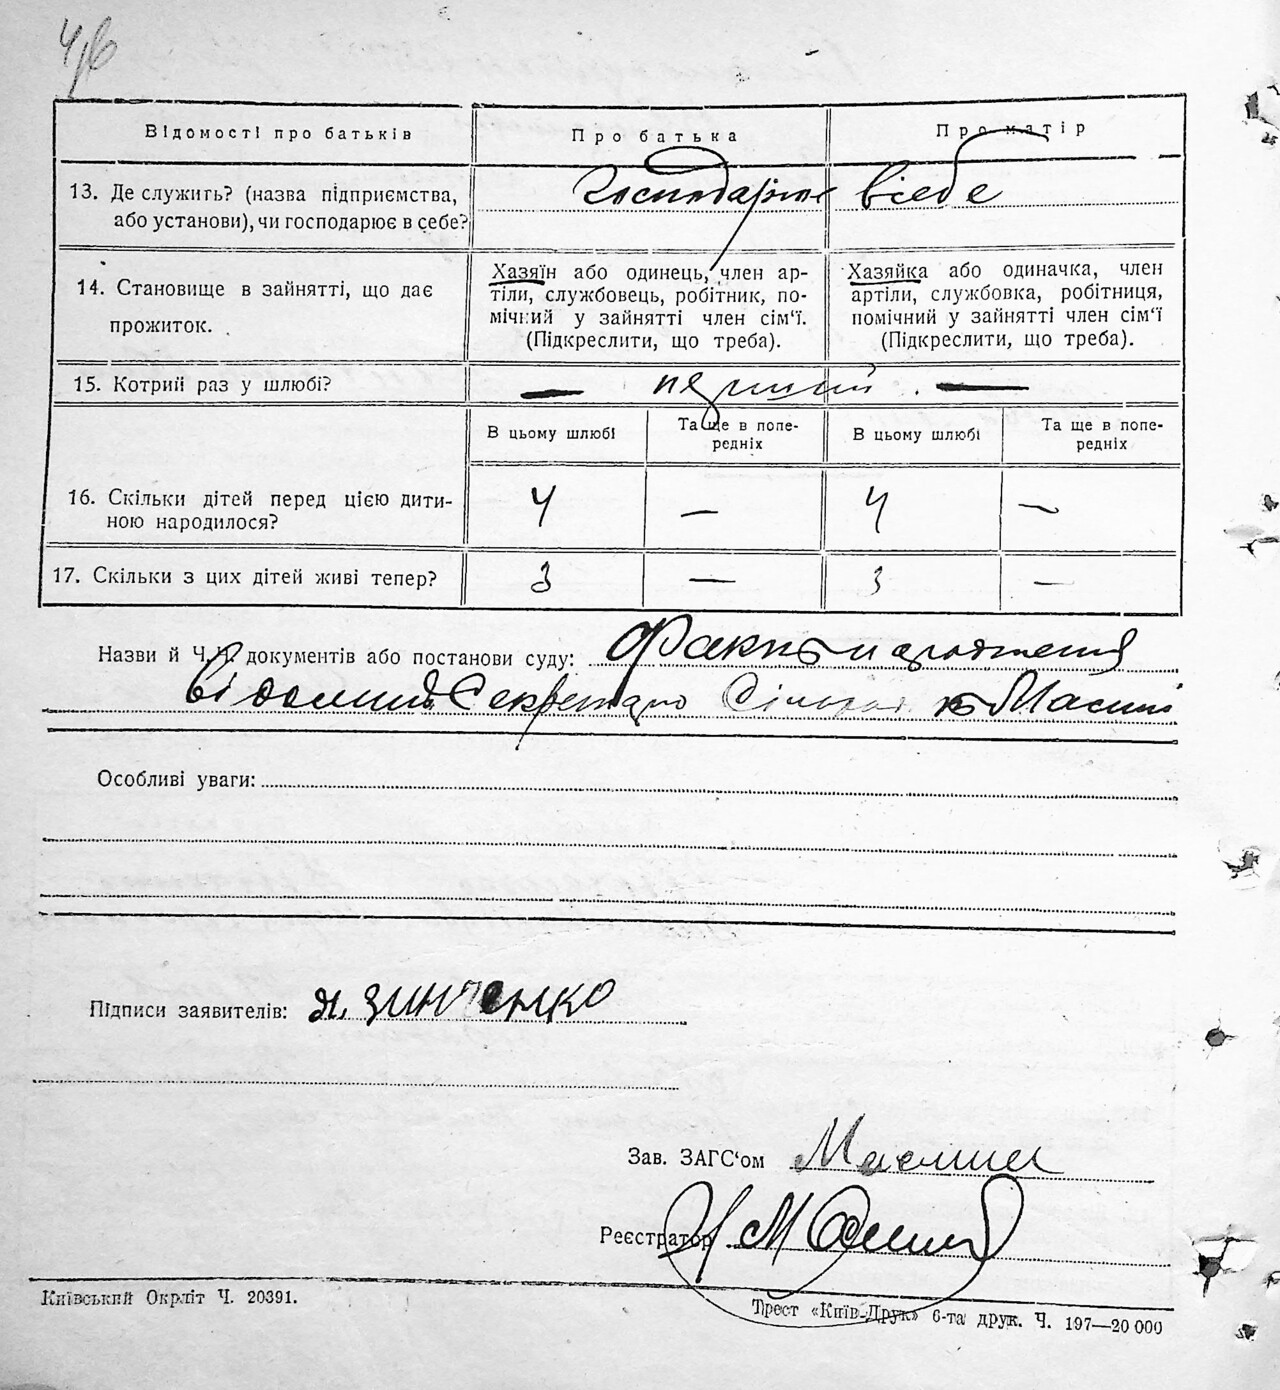 Відомості про батьків
Про батька
Про матір
13. Де служить? (назва підприємства,
або установи), чи господарює в себе?
господарює в себе
14. Становище в зайнятті, що дає
прожиток.
Хазяїн або одинець, член ар-
тіли, службовець, робітник, по-
мічний у зайнятті член сім'ї.
(Підкреслити, що треба).
Хазяйка або одиначка, член
артіли, службовка, робітниця,
помічний у зайнятті член сім'ї
(Підкреслити, що треба).
15. Котрий раз у шлюбі?
— перший . —
В цьому шлюбі
Та ще в попе-
редніх
В цьому шлюбі
Та ще в попе-
редніх
16. Скільки дітей перед цією дити-
ною народилося?
4 — 4 —
17. Скільки з цих дітей живі тепер?
3 — 3 —
Назви й Ч.Ч. документів або постанови суду: Факт народження
відомий Секретарю Сільради
Особливі уваги:
Підписи заявителів: Я. Зинченко
Зав. ЗАГС'ом
Реєстратор
Київський Окрліт Ч. 20391.
Трест «Київ-Друк» 6-та друк. Ч. 197—20 000